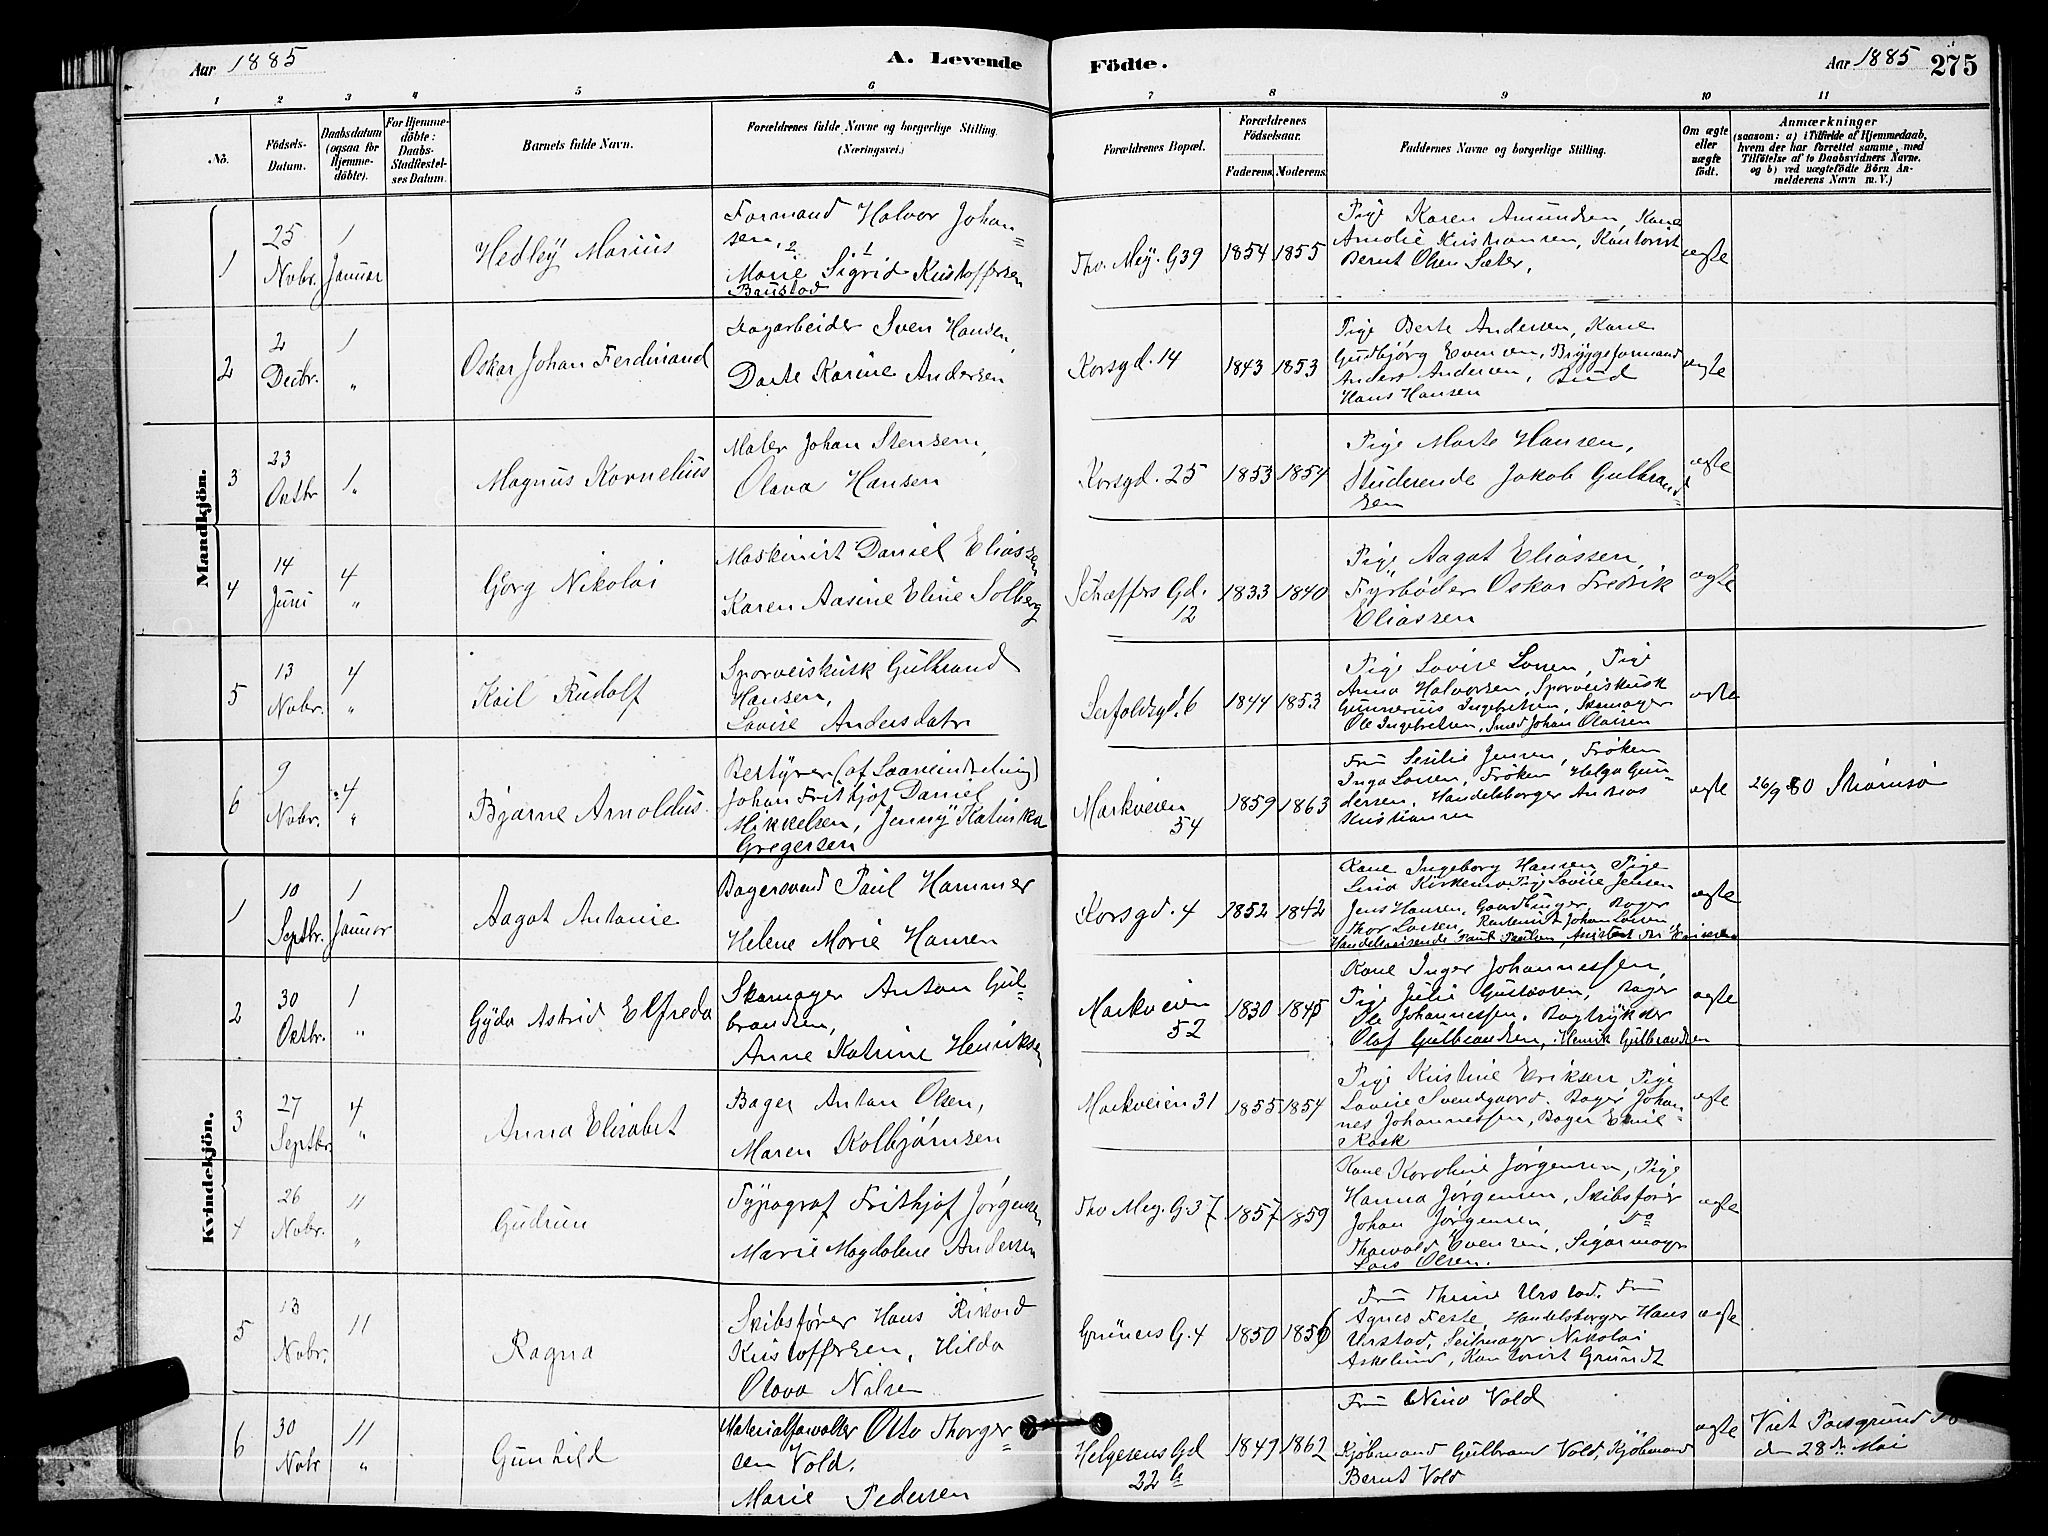 Aar 1885
A. Levende
Födte.
Aar 1885
275
1 2 3 4 5 6 7 8 9 10 11
No.
Födsels-Datum.
Daabsdatum (ogsaa for Hjemme-döbte).
For Hjemme-döbte: Daabs-Stadfestel-ses Datum.
Barnets fulde Navn.
Forældrenes fulde Navne og borgerlige Stilling.
(Næringsvei.)
Forældrenes Bopæl.
Forældrenes Födselsaar.
Faderens. Moderens.
Faddernes Navne og borgerlige Stilling.
Om ægte eller uægte födt.
Anmærkninger
(saasom: a) i Tilfælde af Hjemmedaab, hvem der har forrettet samme, med Tilföielse af to Daabsvidners Navne. og b) ved uægtefödte Börn Anmelderens Navn m. V.)
Mandkjön.
1
25 Novbr.
1 Januar
Hedley Marius
Formand Halvor Johan=
sen, 2 1
Marie Sigrid Kristoffersen
Baustad
Tho. Mey. G 39
1854 1855
Pige Karen Amundsen, Kone
Amalie Kristiansen, Kontorist
Bernt Olsen Sæter,
ægte
2
2 Decbr.
1 "
Oskar Johan Ferdinand
Dagarbeider Sven Hansen,
Dorte Karine Andersen
Korsgd. 14
1843 1853
Pige Berte Andersen, Kone
Gudbjørg Evensen, Bryggeformand
Anders Andersen, Bud
Hans Hansen
ægte
3
23 Octbr
1 "
Magnus Kornelius
Maler Johan Stensen,
Olava Hansen
Korsgd. 25
1853 1854
Pige Marte Hansen,
Studerende Jakob Gulbrand=
sen
ægte
4
14 Juni
4 "
Gørg Nikolai
Maskinist Daniel Eliassen
Karen Aasine Eline Solberg
Schæffers Gd. 12
1833 1840
Pige Aagot Eliassen,
Fyrbøder Oskar Fredrik
Eliassen
ægte
5
13 Novbr.
4 "
Karl Rudolf
Sporveiskusk Gulbrand
Hansen,
Lovise Andersdatr
Seifoldsgd. 6
1844 1853
Pige Lovise Larsen, Pige
Anna Halvorsen, Sporveiskusk
Gunnerius Ingebretsen, Skomager
Ole Ingebretsen, Smed Johan Olassen
ægte
6
9 Novbr.
4 "
Bjarne Arnoldus.
Bestyrer (af Laaneindretning)
Johan Frithjof Daniel
Mikkelsen, Jenny Katinka
Gregersen
Markveien 54
1859 1863
Fru Sesilie Jensen, Frøken
Inga Larsen, Frøken Helga Gun=
dersen, Handelsborger Andreas
Kristiansen
ægte
26/9 80 Strømsø
Kvindekjön.
1
10 Septbr.
1 Januar
Aagot Antonie
Bagersvend Paul Hammer
Helene Marie Hansen
Korsgd. 4
1852 1842
Kone Ingeborg Hansen Pige
Lina Kirkemo Pige Lovise Jensen
Jens Hansen, Gaardbruger, Bager
Thor Larsen, Johan Larsen
Handelsreisende Paul Paulsen,
ægte
2
30 Octbr.
1 "
Gyda Astrid Elfreda
Skomager Anton Gul=
brandsen,
Anne Katrine Henriksen
Markveien 52
1830 1845
Kone Inger Johannessen,
Pige Julie Gustavsen, Bager
Ole Johannessen, Bogtrykker
Olaf Gulbrandsen, Henrik Gulbrandsen
ægte
3
27 Septbr.
4 "
Anna Elisabet
Bager Anton Olsen,
Maren Kolbjørnsen
Markveien 31
1855 1854
Pige Kristine Eriksen, Pige
Lovise Svendgaard. Bager Johan
nes Johannessen, Bager Emil
Rask
ægte
4
26 Novbr.
11 "
Gudrun
Typograf Frithjof Jørgensen
Marie Magdalene Andersen
Tho Mey. G. 37
1857 1859
Kone Karoline Jørgensen, Pige
Hanna Jørgensen, Skibsfører
Johan Jørgensen, Do
Thorvald Evensen, Sigarmager
Lars Olsen.
ægte
5
13 Novbr.
11
Ragna
Skibsfører Hans Rikard
Kristoffersen, Hilda
Olava Nilsen
Grüners G. 4
1850 1856
Fru Thrine Urstad. Fru
Agnes Feste, Handelsborger Hans
Urstad, Seilmager Nikolai
Askelund, Kontorist Grundt
ægte
6
30 Novbr
11 "
Gunhild
Materialforvalter Otto Thorger=
sen Vold.
Marie Pedersen
Helgesens Gd 22 b
1849 1862
Fru Nina Vold
Kjøbmand Gulbrand Vold, Kjøbmand
Bernt Vold
ægte
Viet Porsgrund
den 28de Mai